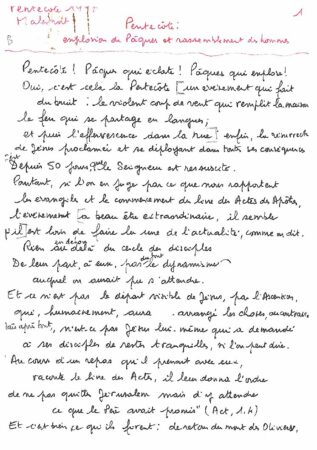 Pentecôte 1975
Malestroit
1
B
Pentecôte :
explosion de Pâques et rassemblement des hommes
Pentecôte ! Pâques qui éclate ! Pâques qui explose !
Oui, c'est cela la Pentecôte [un événement qui fait
du bruit : le violent coup de vent qui remplit la maison
le feu qui se partage en langues ;
et puis l'effervescence dans la rue] enfin, la résurrection
de Jésus proclamée et se déployant dans toutes ses conséquences
Depuis 50 jours, le Seigneur est ressuscité.
Pourtant, si l'on en juge par ce que nous rapportent
les évangiles et le commencement du livre des Actes des Apôtres,
l'événement a beau être extraordinaire, il semble
qu'il est loin de faire la une de l'actualité, comme on dit.
Rien au delà du cercle des disciples
en dehors
De leur part, à eux, pas le dynamisme
auquel on aurait pu s'attendre.
Et ce n'est pas le départ visible de Jésus, par l'Ascension,
qui, humainement, aura arrangé les choses, au contraire.
Mais après tout, n'est-ce pas Jésus lui-même qui a demandé
à ses disciples de rester tranquilles, si l'on peut dire.
"Au cours d'un repas qu'il prenait avec eux,
raconte le livre des Actes, il leur donna l'ordre
de ne pas quitter Jérusalem mais d'y attendre
ce que le Père avait promis" (Act, 1.4)
Et c'est bien ce qu'ils firent : de retour du mont des Oliviers,